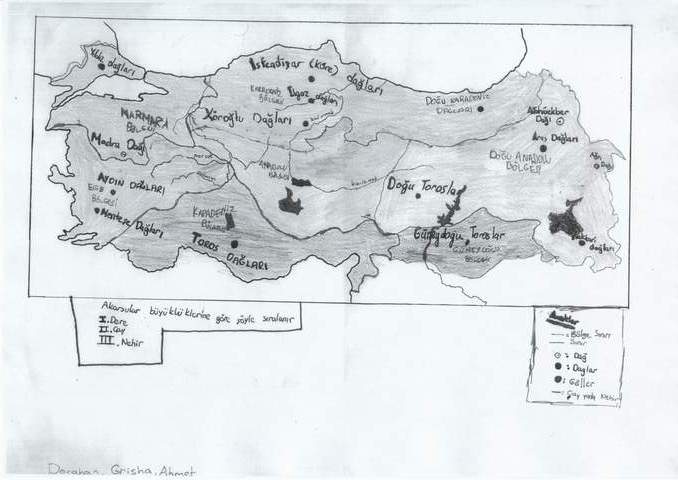 Yıldız dağları
İsfendiyar (Köre) dağları
KARADENİZ
BÖLGESİ
Ilgaz dağları
Köroğlu Dağları
MARMARA
BÖLGESİ
DOĞU KARADENİZ
DAĞLARI
Allahüekber
Dağı
Aras Dağları
DOĞU ANADOLU
BÖLGESİ
Ağrı
Dağı
Madra Dağı
ANADOLU
BÖLGESİ
AYDIN DAĞLARI
EGE
BÖLGESİ
Menteşe Dağları
Doğu Toroslar
KARADENİZ
TOROS DAĞLARI
Güneydoğu Toroslar
GÜNEYDOĞU
BÖLGESİ
Hakkari
dağları
Akarsular büyüklüklerine göre şöyle sıralanır
I. Dere
II. Çay
III. Nehir
: Bölge Sınırı
Sınır
: Dağ
: Dağlar
: Göller
: Çay yada Nehir
Dorukan, Grisha, Ahmet